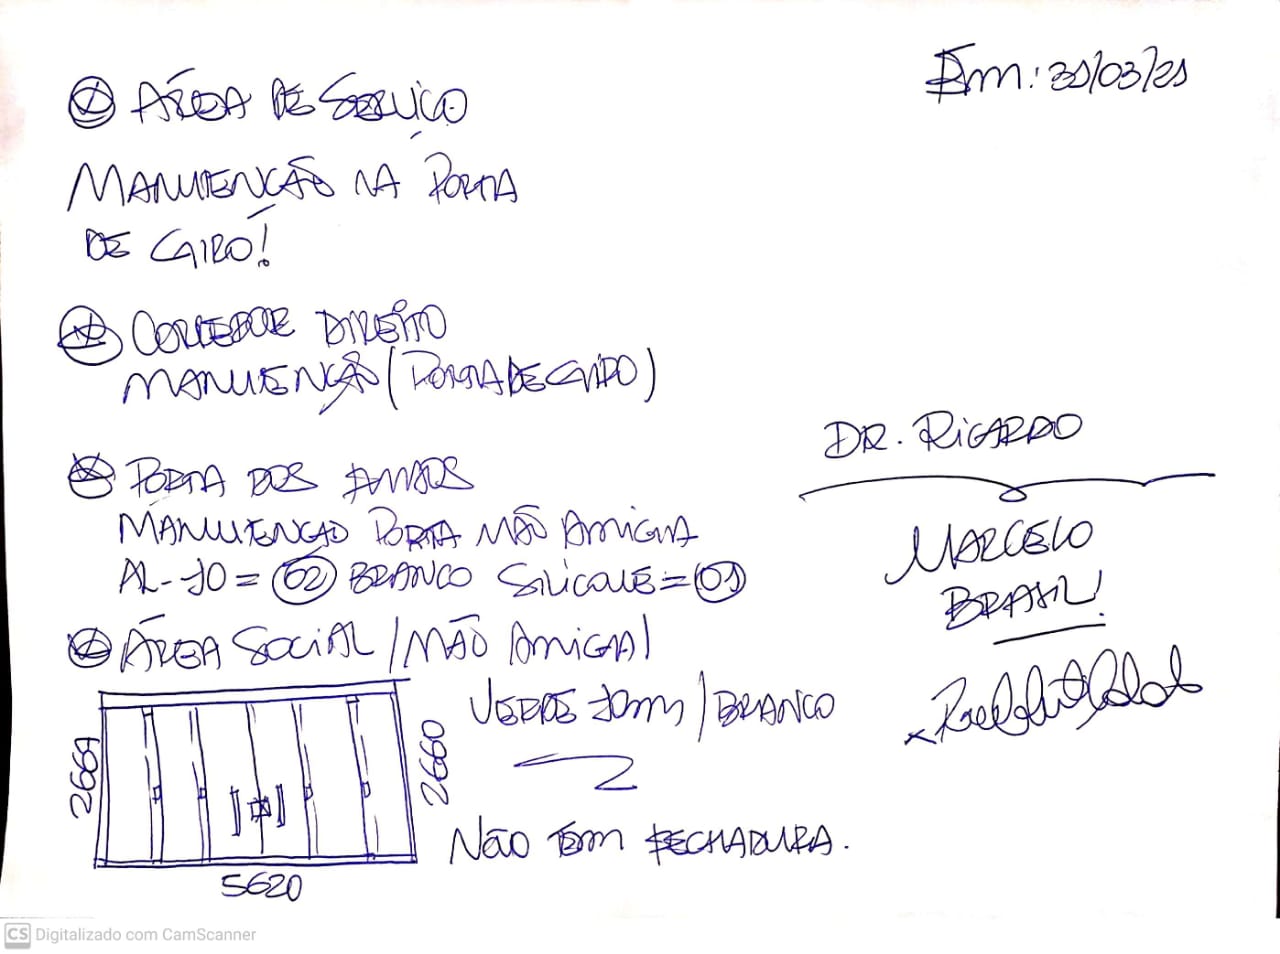 Em: 31/03/21
ÁREA DE SERVIÇO
MANUTENÇÃO NA PORTA
DE GIRO!
CORREDOR DIREITO
MANUTENÇÃO (PORTA DE GIRO)
PORTA DOS
MANUTENÇÃO PORTA MÃO AMIGA
AL-10 = 02 BRANCO SILICONE = 01
ÁREA SOCIAL / MÃO AMIGA /
VERDE 10mm / BRANCO
2661
2660
5620
NÃO TEM FECHADURA.
DR. RICARDO
MARCELO
BRASIL!
CS Digitalizado com CamScanner